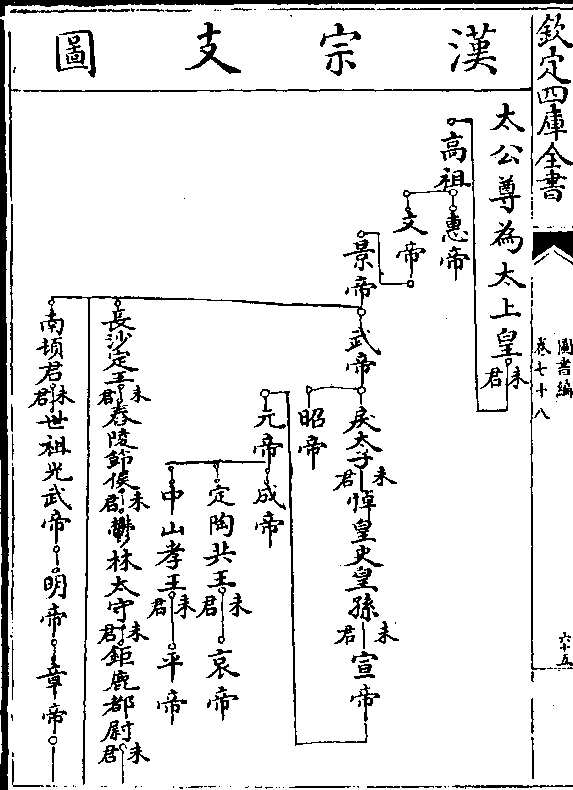 欽定四庫全書
圖書編
卷七十八
六十五
漢宗支圖
太公尊為太上皇未君
高祖
惠帝
文帝
景帝
武帝
戾太子未君
悼皇史皇孫未君
宣帝
昭帝
元帝
成帝
定陶共王未君
哀帝
中山孝王未君
平帝
長沙定王未君
舂陵節侯未君
鬱林太守未君
鉅鹿都尉未君
南頓君未君
世祖光武帝
明帝
章帝